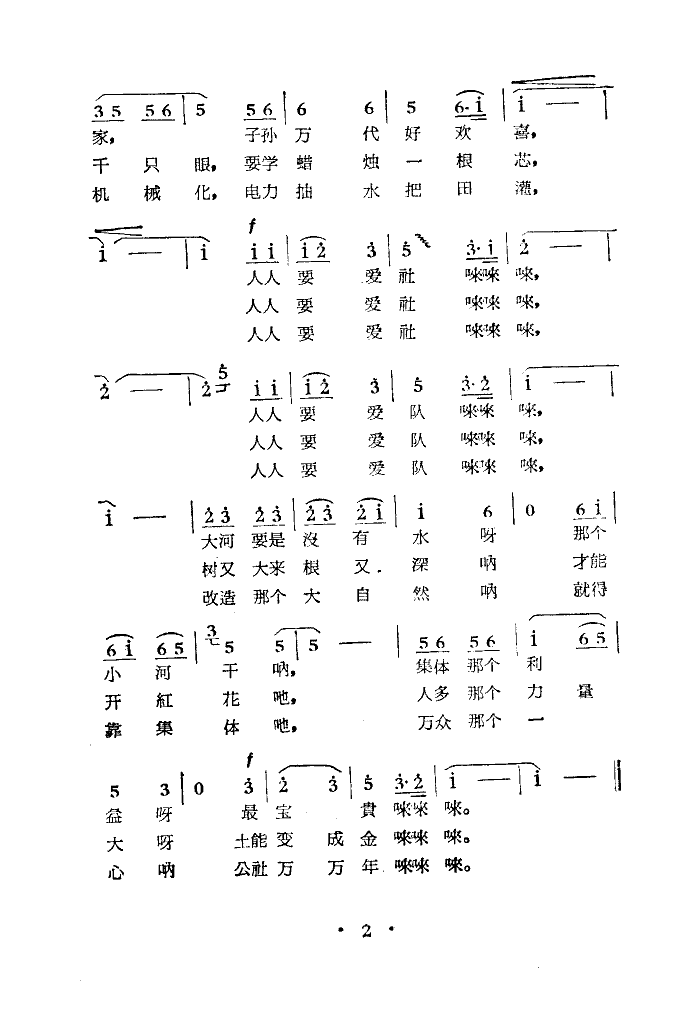 3 5 5 6 | 5 5 6 | 6 6 | 5 6· i | i — |
家， 子孙 万 代 好 欢 喜，
千 只 眼， 要学 蜡 烛 一 根 芯，
机 械 化， 电力 抽 水 把 田 灌，
f
i — | i i i | i 2 3 | 5 3· i | 2 — |
人人 要 爱 社 唻唻 唻，
人人 要 爱 社 唻唻 唻，
人人 要 爱 社 唻唻 唻，
5
2 — | 2 i i | i 2 3 | 5 3· 2 | i — |
人人 要 爱 队 唻唻 唻，
人人 要 爱 队 唻唻 唻，
人人 要 爱 队 唻唻 唻，
i — | 2 3 2 3 | 2 3 2 i | i 6 | 0 6 i |
大河 要是 沒 有 水 呀 那个
树又 大来 根 又 深 吶 才能
改造 那个 大 自 然 吶 就得
3
6 i 6 5 | 5 5 | 5 — | 5 6 5 6 | i 6 5 |
小 河 干 吶， 集体 那个 利
开 紅 花 吔， 人多 那个 力 量
靠 集 体 吔， 万众 那个 一
f
5 3 | 0 3 | 2 3 | 5 3· 2 | i — | i — ‖
益 呀 最 宝 貴 唻唻 唻。
大 呀 土能 变 成 金 唻唻 唻。
心 吶 公社 万 万 年 唻唻 唻。
· 2 ·